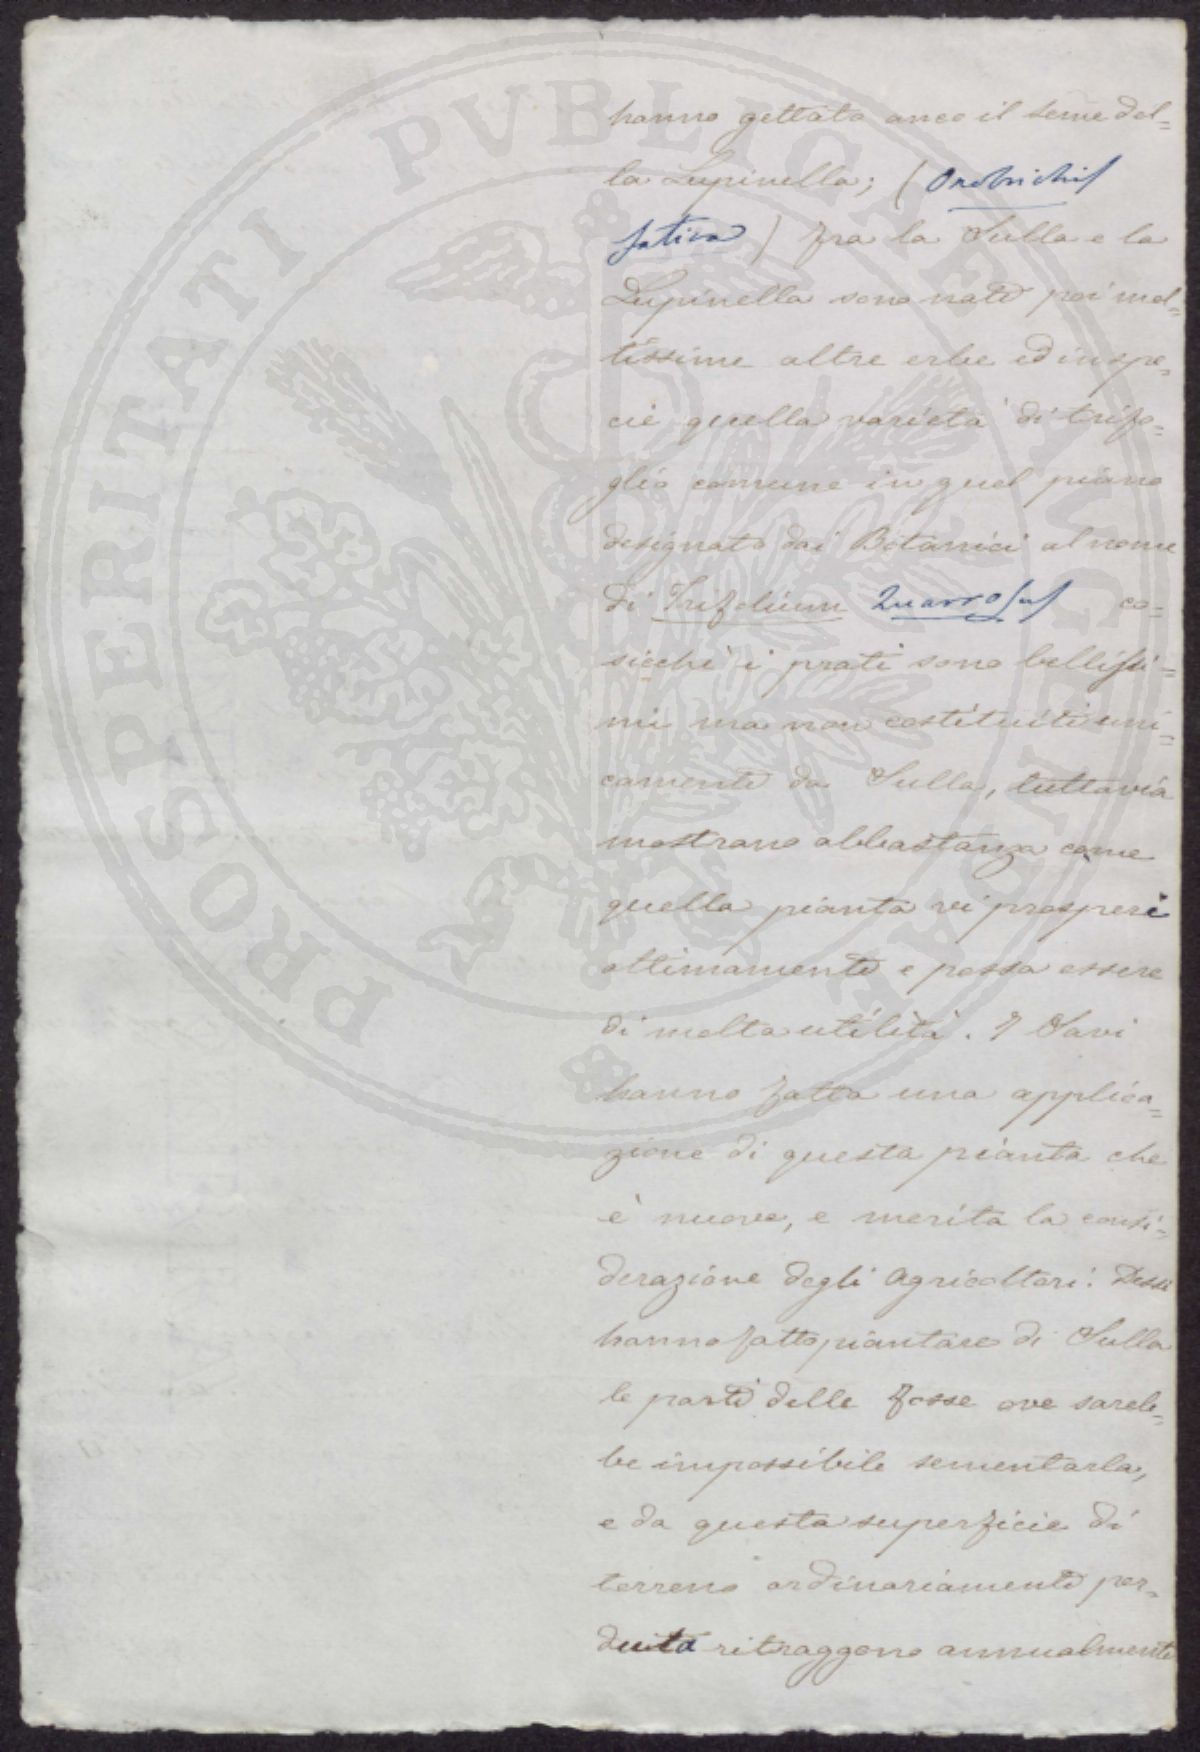 hanno gettato anco il seme del=
la Lupinella; (Onobrichis
sativa) fra la Sulla e la
Lupinella sono nate poi mol=
tissime altre erbe ed inspe=
cie quella varietà di trifo=
glio comune in quel piano
designato dai Botanici al nome
di Trifolium Quarrosus co=
sicchè i prati sono bellissi=
mi ma non costituiti uni=
camente da Sulla, tuttavia
mostrano abbastanza come
quella pianta vi prosperi
ottimamente e possa essere
di molta utilità. I Savi
hanno fatta una applica=
zione di questa pianta che
è nuova, e merita la consi=
derazione degli Agricoltori. Dessi
hanno fatto piantare di Sulla
le pareti delle fosse ove sareb=
be impossibile sementarla,
e da questa superficie di
terreno ordinariamente per=
duta ritraggono annualmente
PROSPERITATI PVBLICAE AVGENDAE